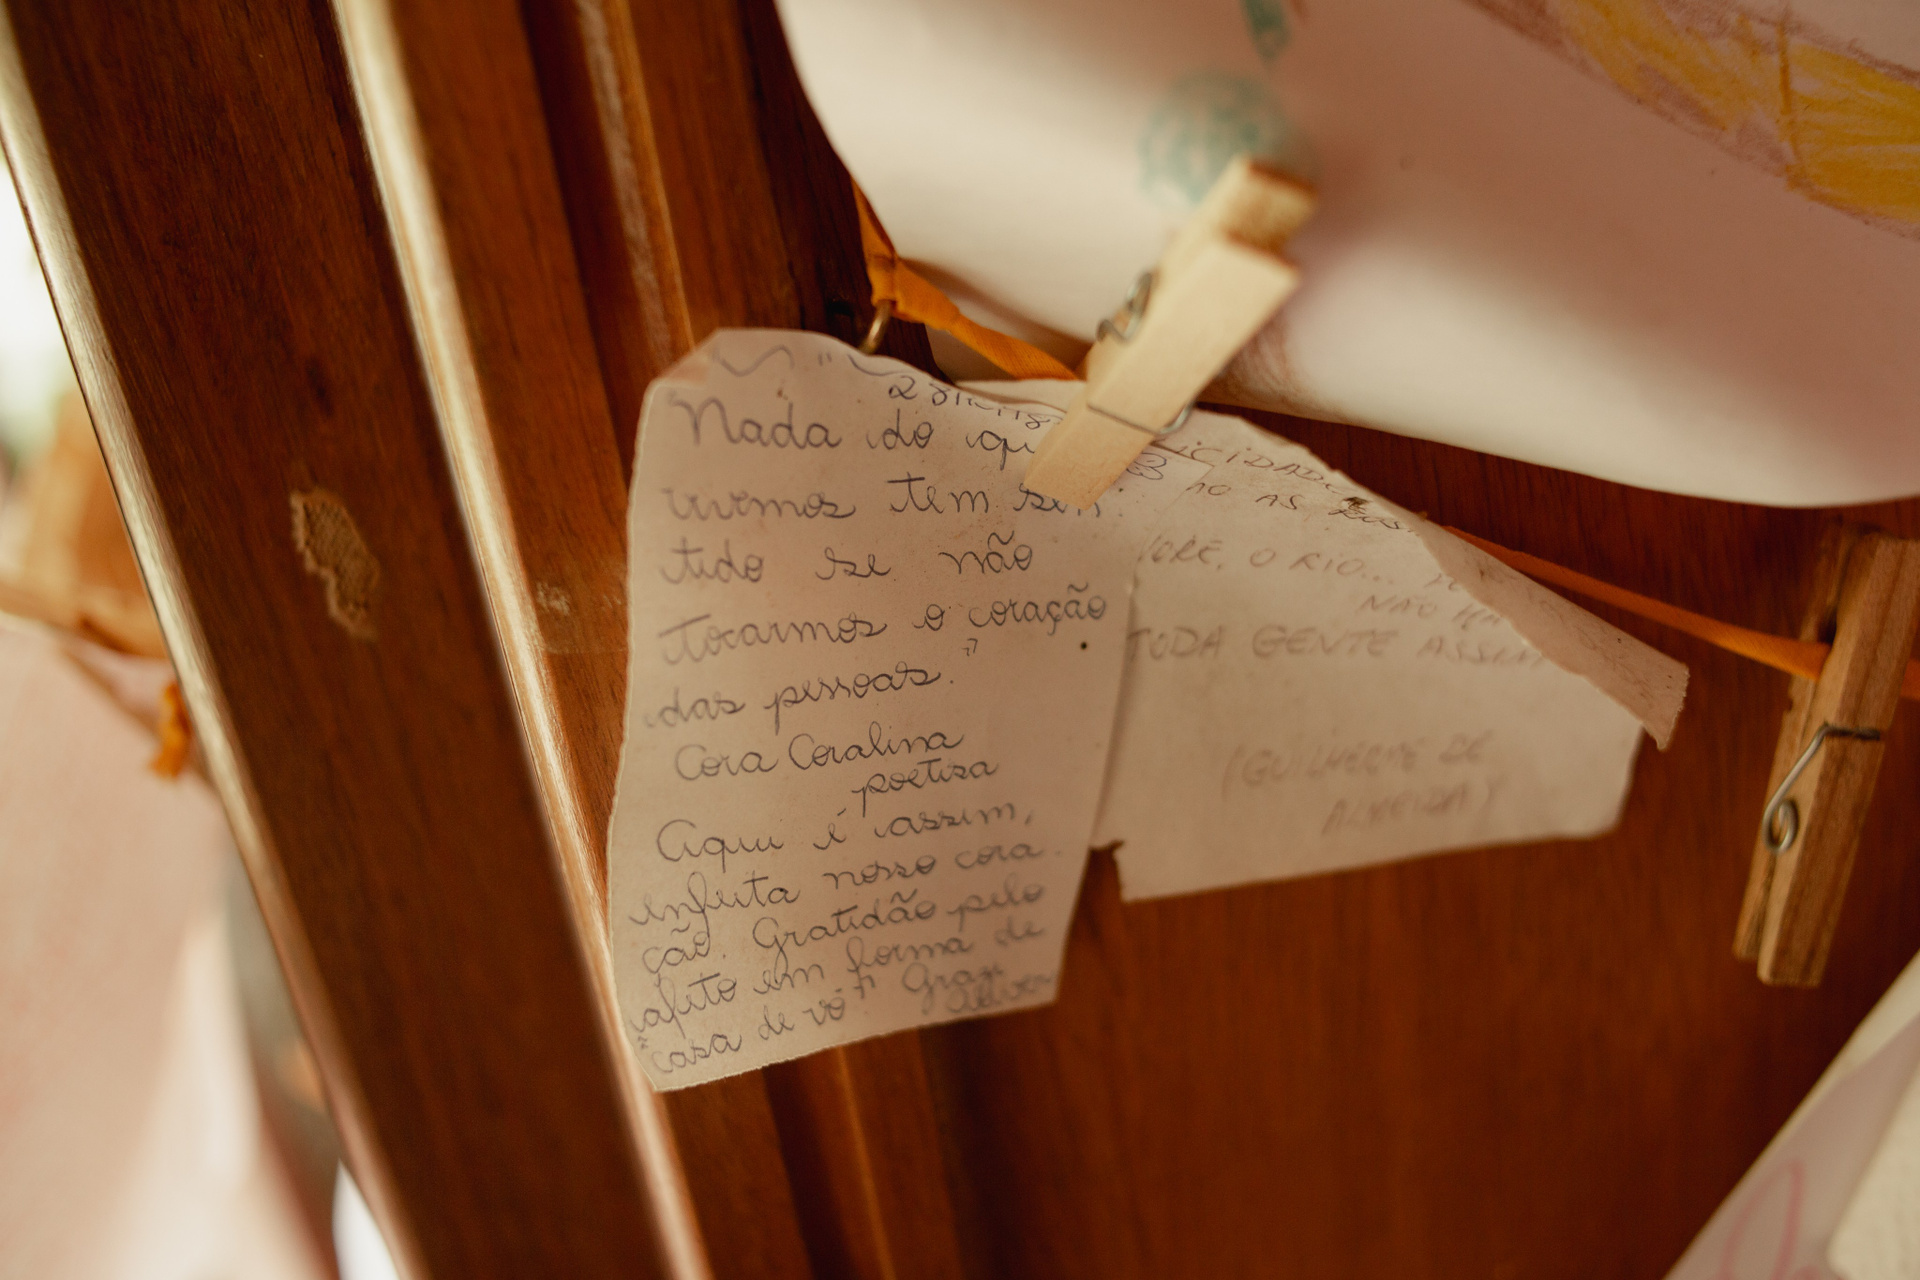 Nada do qu
vivemos tem sen
tido se não
tocarmos o coração
das pessoas."
Cora Coralina
poetisa
Aqui é assim,
enfeita nosso cora
ção. Gratidão pelo
afeto em forma de
"casa de vó" Grazi
ICIDADE
NO AS
VORE, O RIO...
NÃO
TODA GENTE ASSIM
(GUILHERME DE
ALMEIDA)